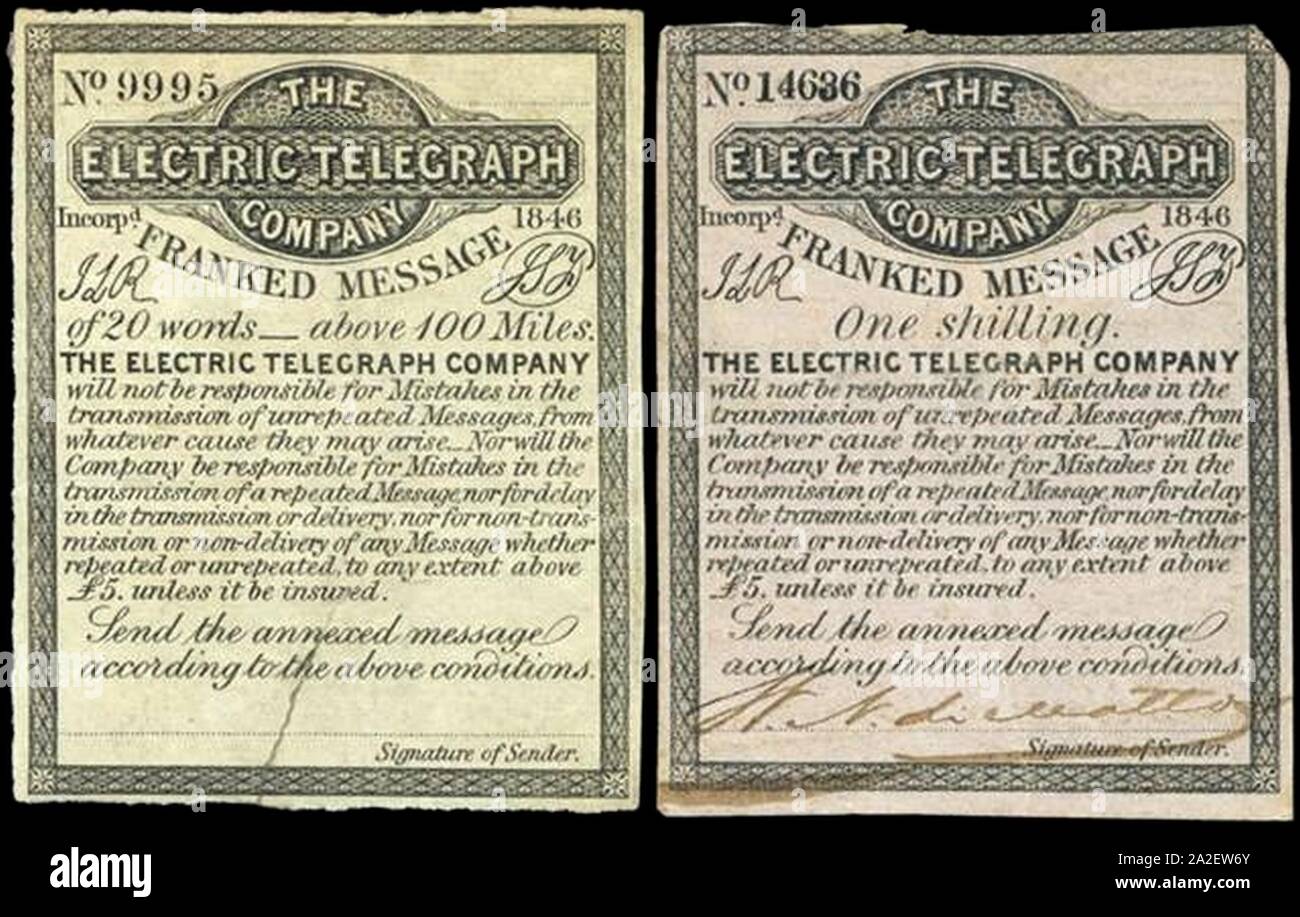 No. 9995
THE
ELECTRIC TELEGRAPH
COMPANY
Incorpd. 1846
FRANKED MESSAGE
JLR
of 20 words— above 100 Miles.
THE ELECTRIC TELEGRAPH COMPANY
will not be responsible for Mistakes in the
transmission of unrepeated Messages, from
whatever cause they may arise—Nor will the
Company be responsible for Mistakes in the
transmission of a repeated Message, nor for delay
in the transmission or delivery, nor for non-trans-
mission or non-delivery of any Message, whether
repeated or unrepeated, to any extent above
£5. unless it be insured.
Send the annexed message
according to the above conditions.
Signature of Sender.
No. 14636
THE
ELECTRIC TELEGRAPH
COMPANY
Incorpd. 1846
FRANKED MESSAGE
JLR
One shilling.
THE ELECTRIC TELEGRAPH COMPANY
will not be responsible for Mistakes in the
transmission of unrepeated Messages, from
whatever cause they may arise—Nor will the
Company be responsible for Mistakes in the
transmission of a repeated Message, nor for delay
in the transmission or delivery, nor for non-trans-
mission or non-delivery of any Message whether
repeated or unrepeated, to any extent above
£5. unless it be insured.
Send the annexed message
according to the above conditions.
Signature of Sender.
alamy
Image ID: 2A2EW6Y
www.alamy.com